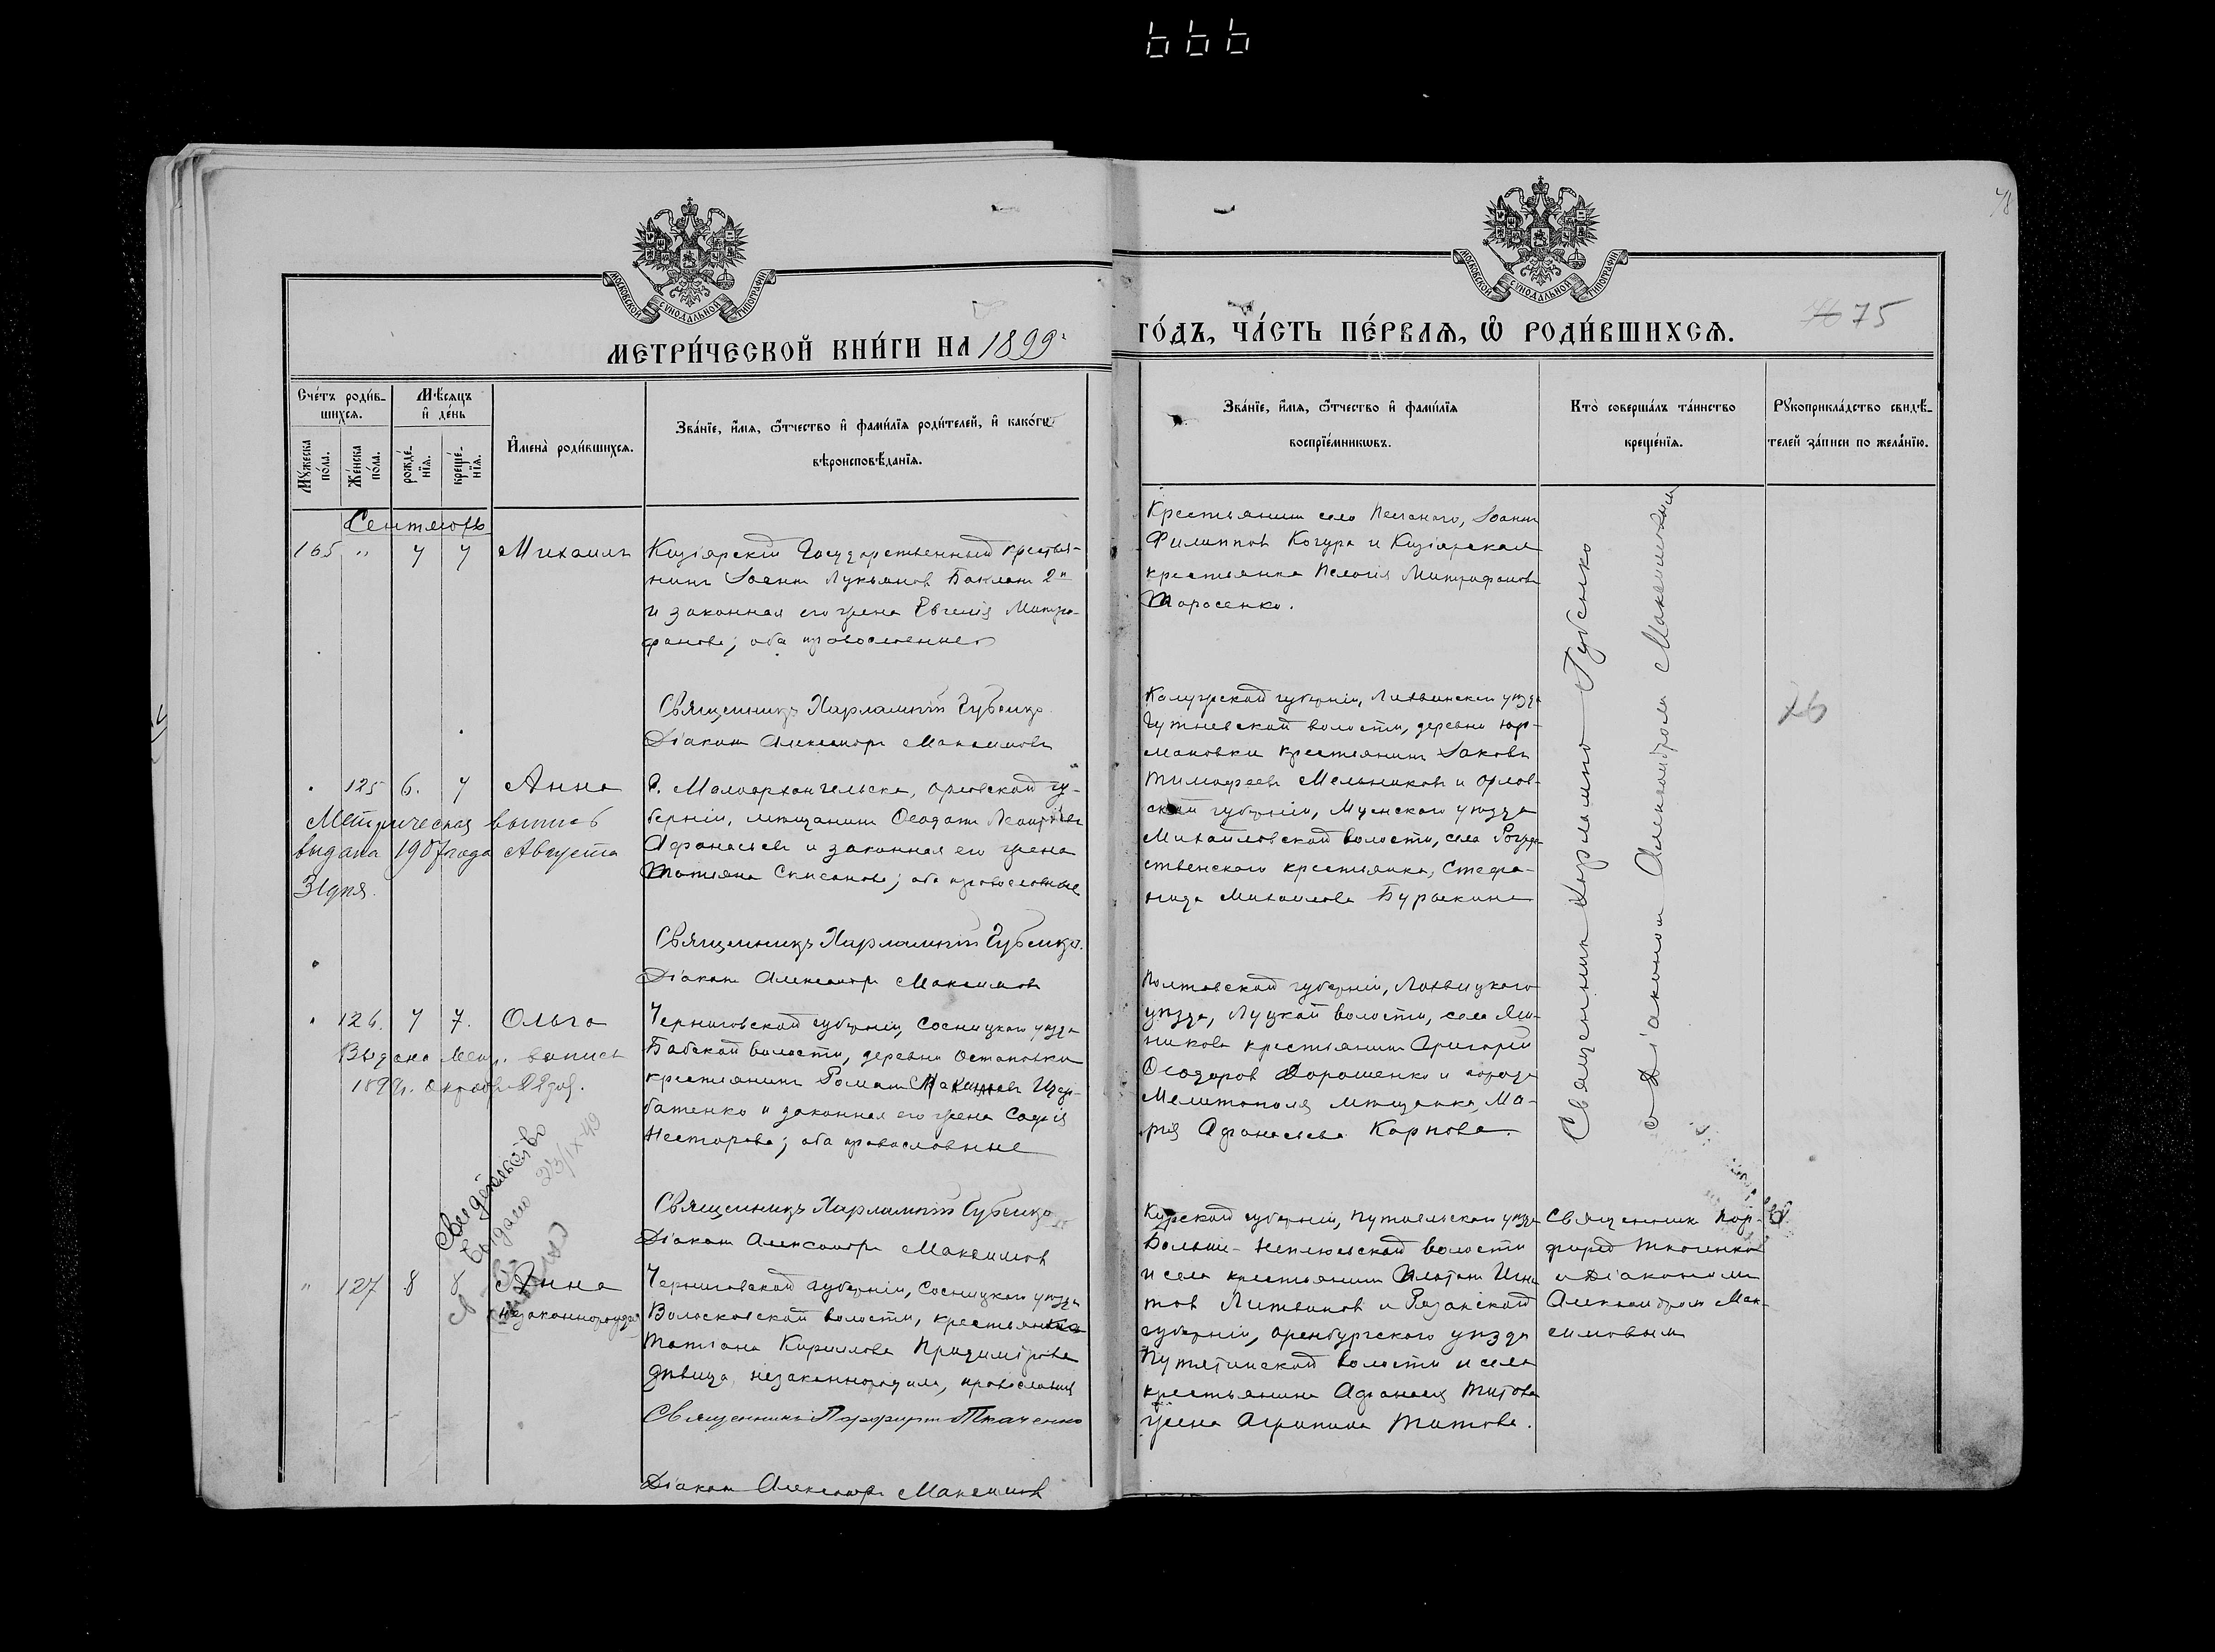 МОСКОВСКОЙ СѴНОДАЛЬНОЙ ТИПОГРАФІИ
МОСКОВСКОЙ СѴНОДАЛЬНОЙ ТИПОГРАФІИ
75
МЕТРИ́ЧЕСКОЙ КНИ́ГИ НА 1899
ГО́ДЪ, ЧА́СТЬ ПЕ́РВАѦ, Ѡ҆ РОДИ́ВШИХСѦ.
Сче́тъ роди́в-
шихсѧ.
Мꙋ́жеска по́ла.
Же́нска по́ла.
Мѣ́сѧцъ
и҆ де́нь
рожде́-
нїѧ.
креще́-
нїѧ.
И҆мена̀ роди́вшихсѧ.
Зва́нїе, и҆́мѧ, ѻ҆́тчество и҆ фами́лїѧ роди́телей, и҆ како́гѡ
вѣроисповѣ́данїѧ.
Зва́нїе, и҆́мѧ, ѻ҆́тчество и҆ фами́лїѧ
воспрїе́мникѡвъ.
Кто̀ соверша́лъ та́инство
креще́нїѧ.
Рꙋкоприкла́дство свидѣ́-
телей за́писи по жела́нїю.
Сентябрь
165 " 7 7 Михаилъ
Государственный крестья-
нинъ Іоаннъ Лукьяновъ Баклан 2й
и законная его жена Евгенія Митро-
фанова; оба православные
Священникъ Харлампій Губенко
Діаконъ Александръ Максимовъ
Крестьянинъ села Песчаного, Іоаннъ
Филипповъ Когура и
крестьянка Пелагія Митрофанова
Тарасенко.
125 6. 7 Анна
Метрическая выпись
выдана 1907 года Августа
31 дня.
г. Малоархангельска, Орловской гу-
берніи, мѣщанинъ Ѳеодотъ
Афанасьевъ и законная его жена
Татіана; оба православные
Священникъ Харлампій Губенко.
Діаконъ Александръ Максимовъ
Калужской губерніи, уѣзда
волости, деревни
крестьянинъ Іаковъ
Тимофеевъ Мельниковъ и Орлов-
ской губерніи, Мценского уѣзда
Михайловской волости, села Рожде-
ственского крестьянка, Стефа-
нида Михайлова Бурыкина
126. 7 7. Ольга
Выдана метр. выпись
Черниговской губерніи, Сосницкого уѣзда
Бабской волости, деревни Остаповки
крестьянинъ Романъ Щер-
батенко и законная его жена Софія
Несторова; оба православные
Священникъ Харлампій Губенко
Діаконъ Александръ Максимовъ
Полтавской губерніи, Лохвицкого
уѣзда, Луцкой волости, села
крестьянинъ Григорій
Ѳеодоровъ Дорошенко и города
Мелитополя мѣщанка, Ма-
рія Афанасьева Карпова.
Священникъ Харлампій Губенко
с Діакономъ Александромъ Максимовымъ
Свидѣтельство
выдано 23/IX 49
" 127 8 8 Анна
(незаконнорожд.)
Черниговской губерніи, Сосницкого уѣзда
Волосковской волости, крестьянка
Татіана Кириллова
дѣвица, незаконнородила, православная
Священникъ Порфирій Ткаченко
Діаконъ Александръ Максимовъ
Курской губерніи, Путивльского уѣзда
Больше-Неплюевской волости
и села крестьянинъ Платонъ Игна-
товъ Литвиновъ и Рязанской
губерніи, уѣзда
Путятинской волости и села
крестьянина Афанасія Титова
жена Агрипина Титова.
Священникъ Пор-
фирій Ткаченко
с Діакономъ
Александромъ Мак-
симовымъ